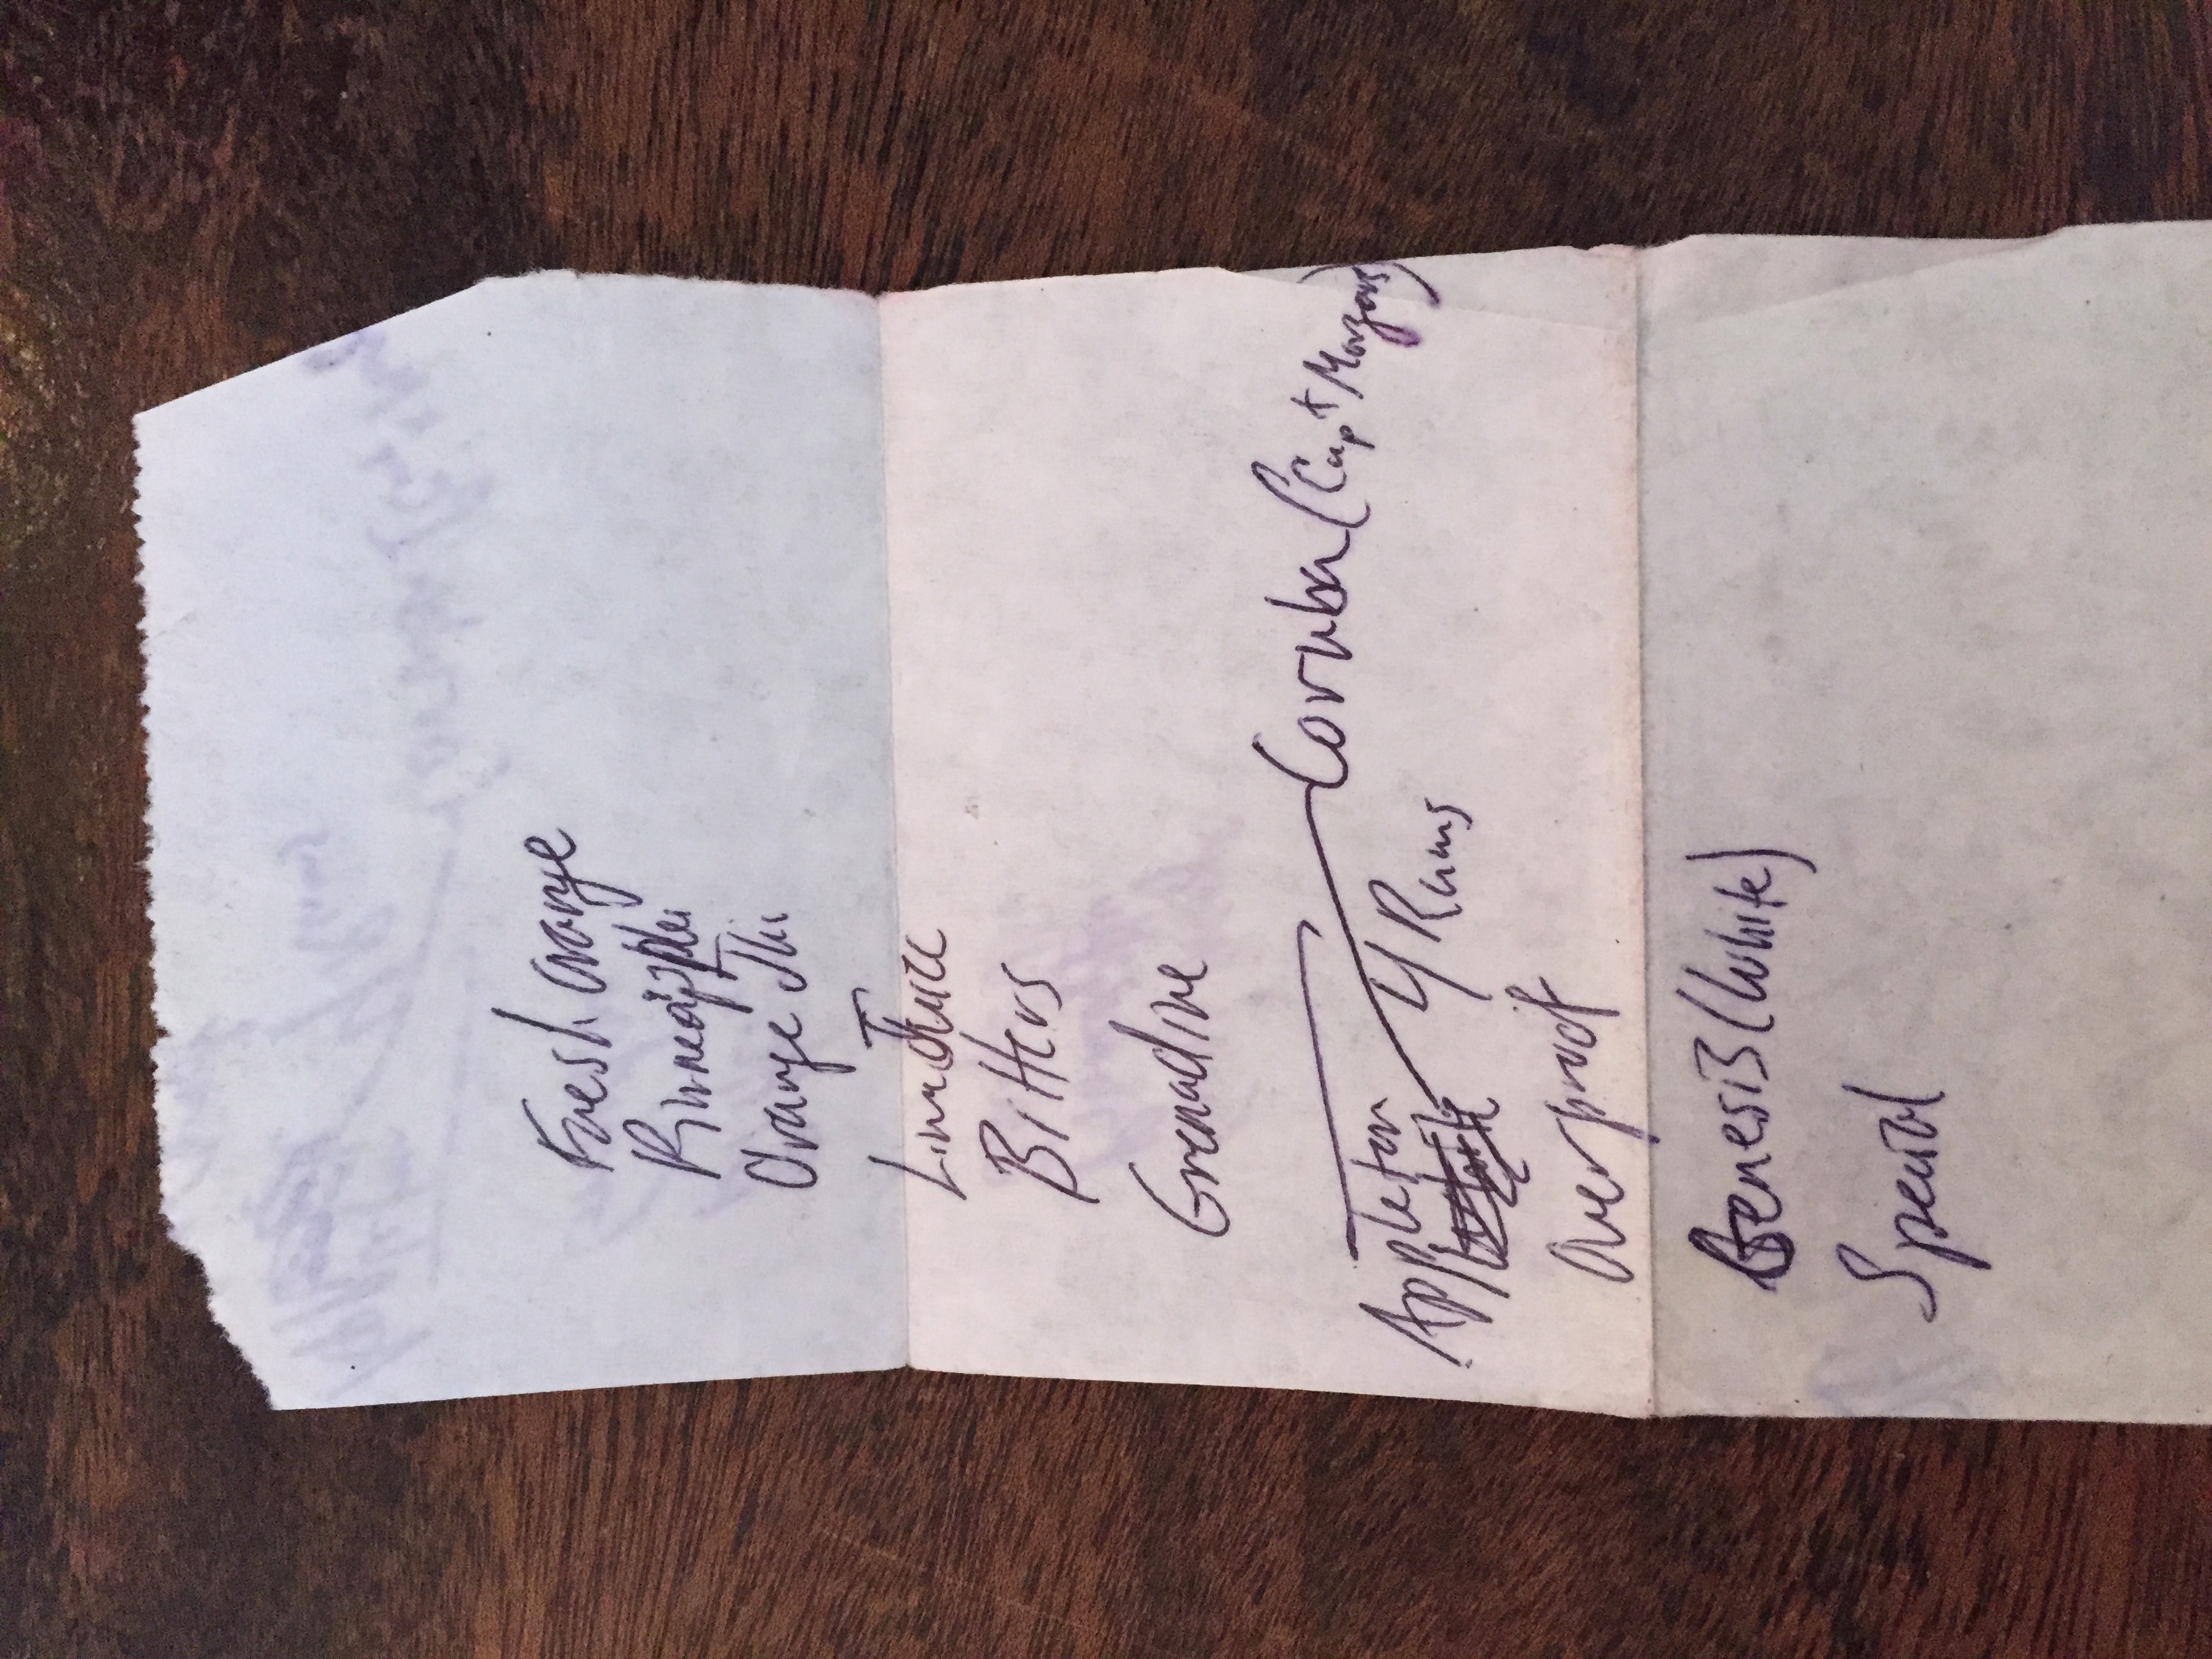 Fresh orange
Pinneapple
Orange Jui
Lime Juice
Bitters
Grenadine
Appleton Coruba (Capt Morgans)
4 Rums
Over proof
Genesis (White)
Special